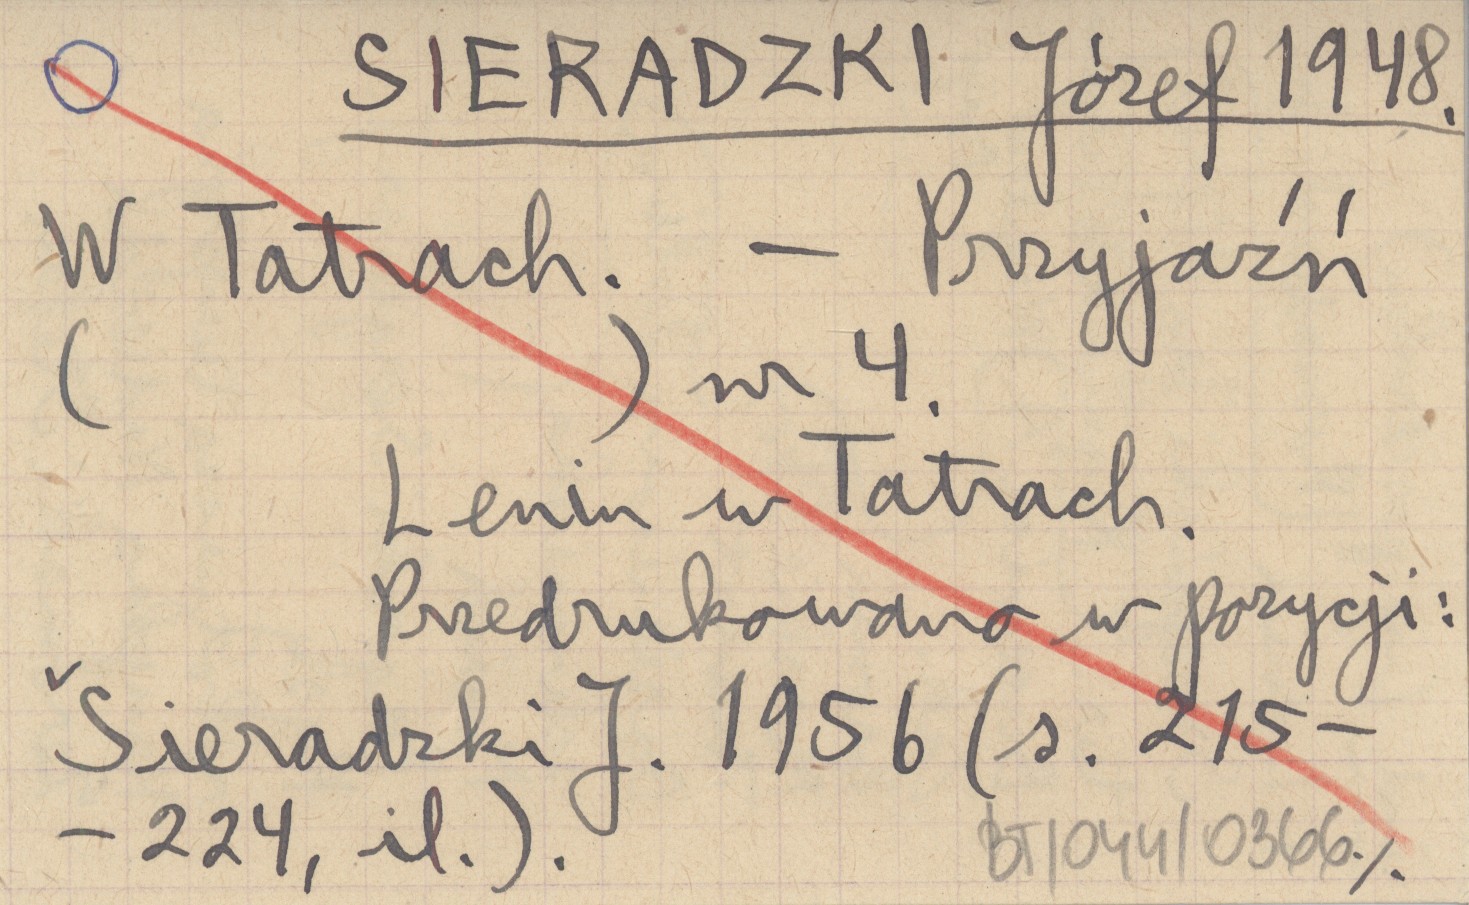 SIERADZKI Józef 1948.
W Tatrach. — Przyjaźń
( ) nr 4.
Lenin w Tatrach.
Przedrukowano w pozycji:
Sieradzki J. 1956 (s. 215–
– 224, il.).
BT/044/0366./.